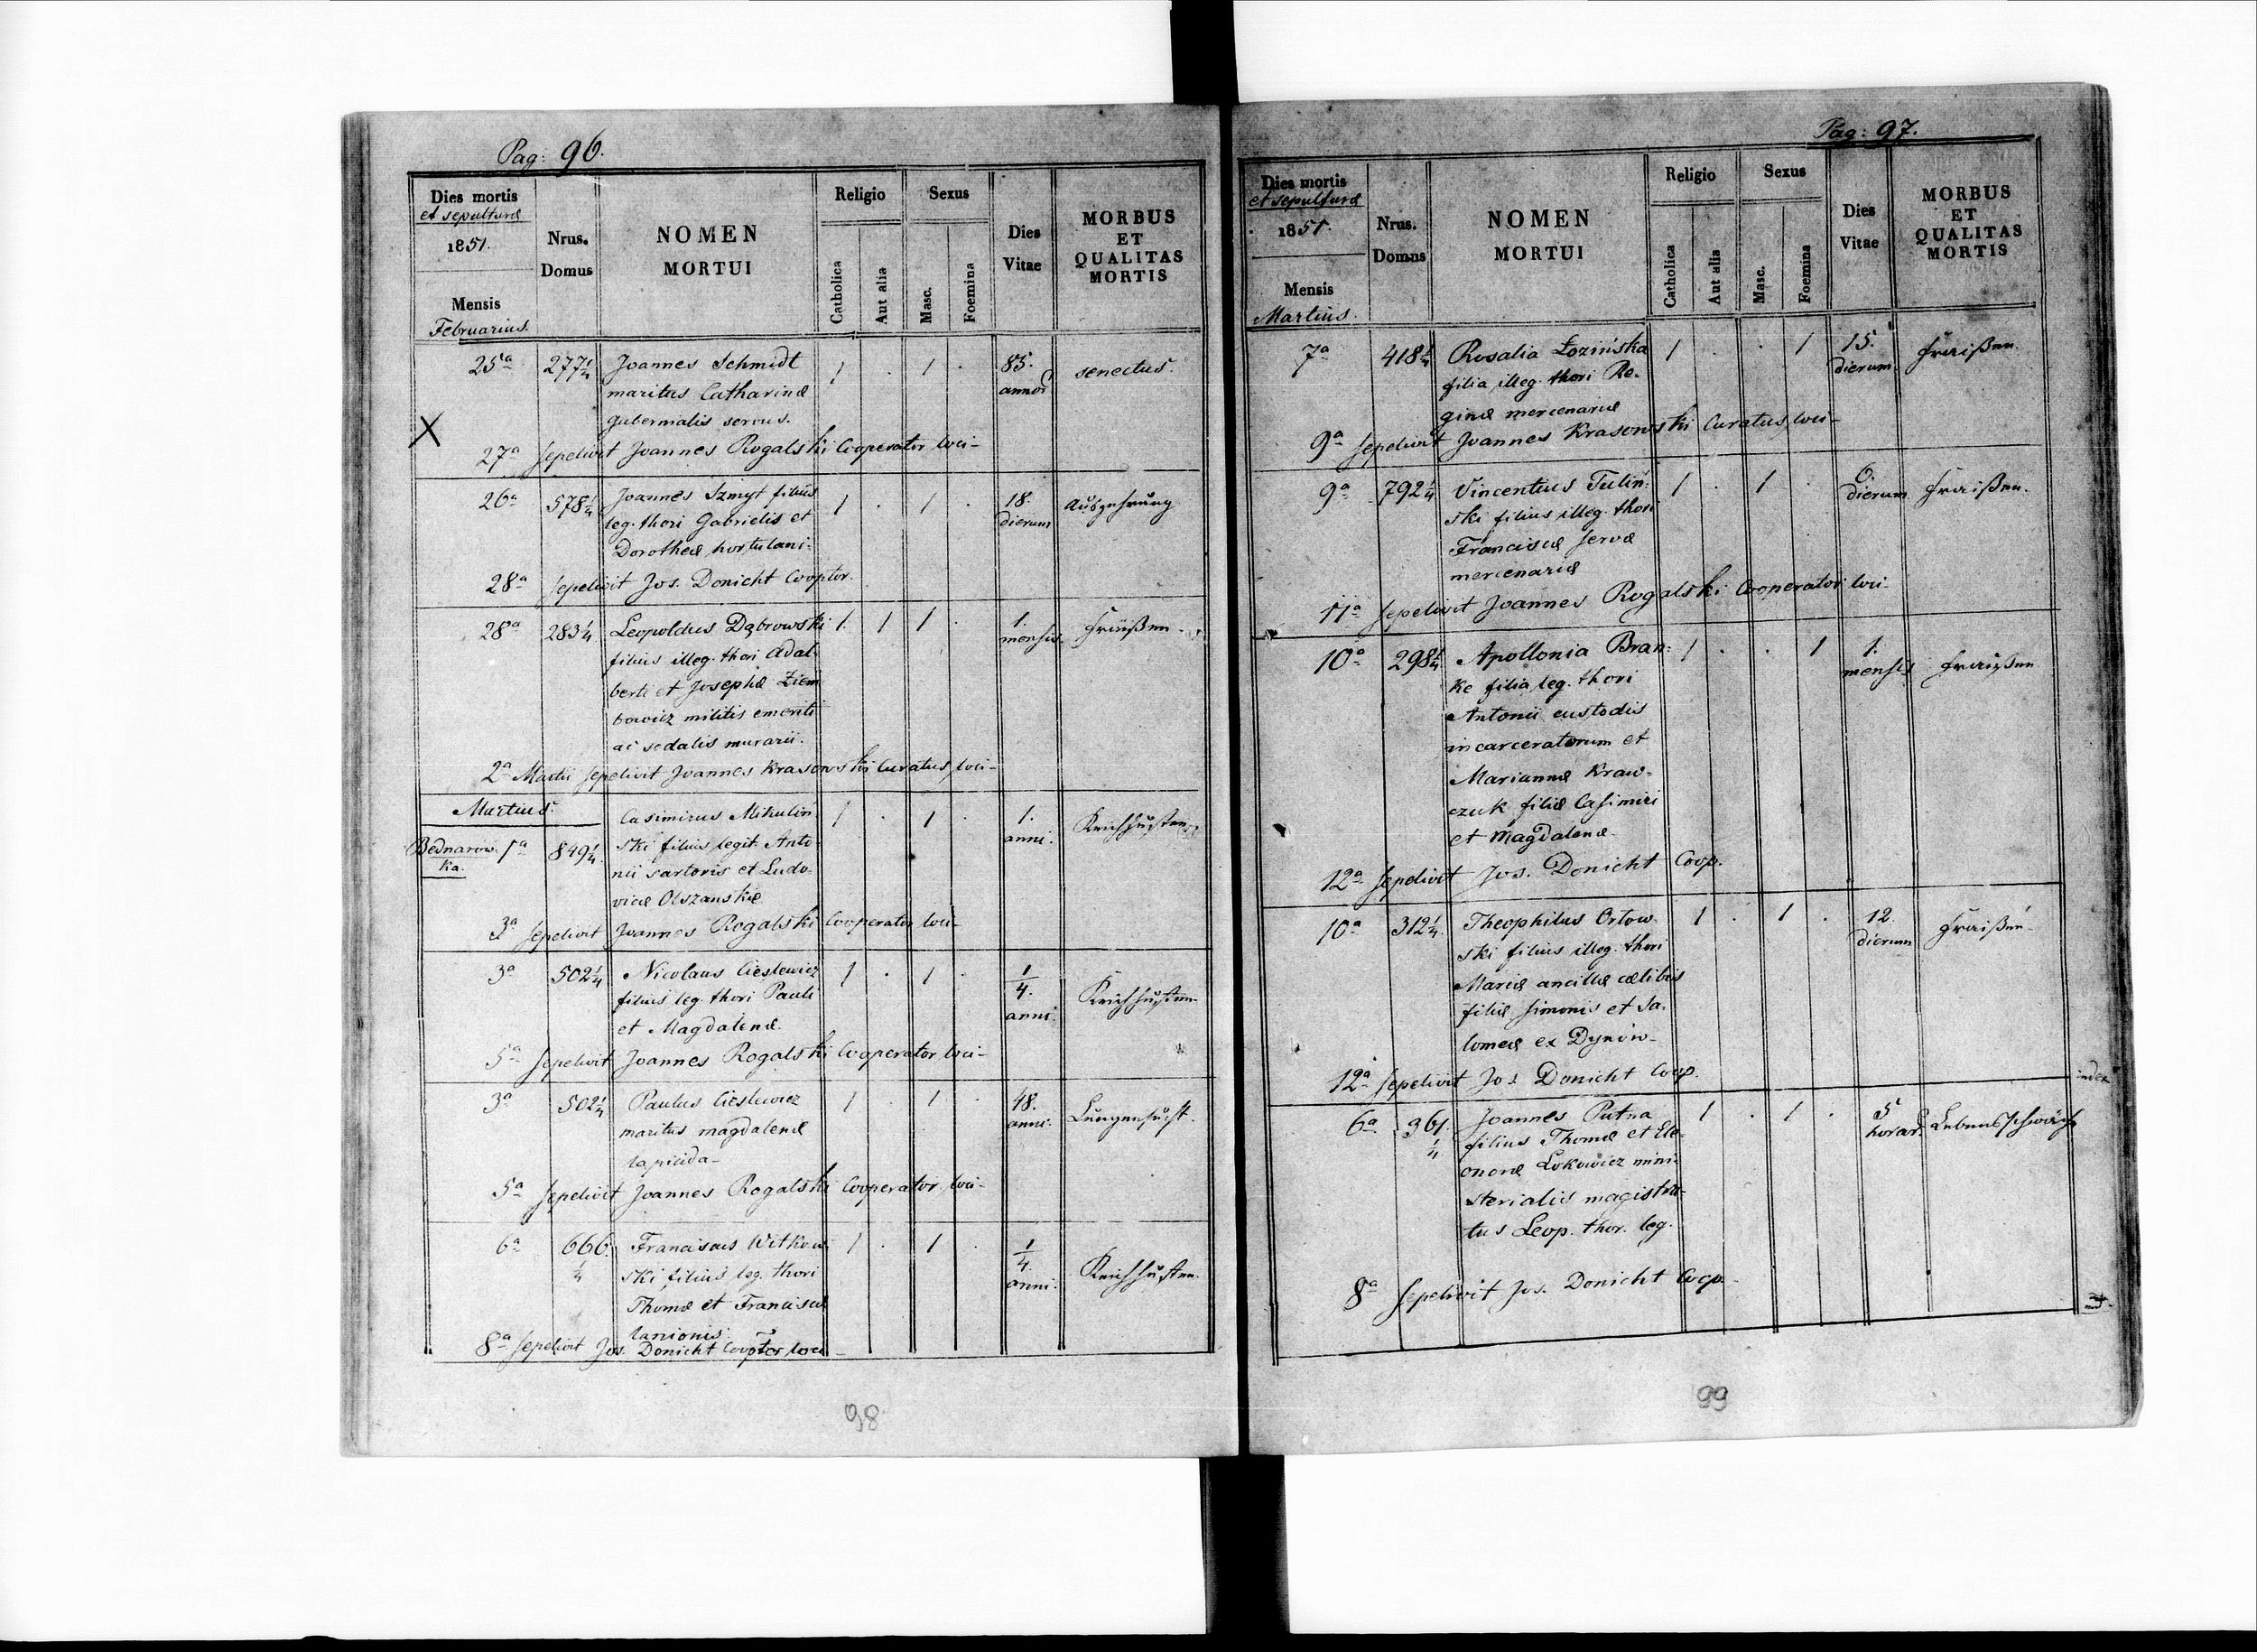 Pag: 96.
Dies mortis
et sepulturæ
1851.
Mensis
Februarius.
Nrus.
Domus
NOMEN
MORTUI
Religio
Catholica
Aut alia
Sexus
Masc.
Foemina
Dies
Vitae
MORBUS
ET
QUALITAS
MORTIS
25a 277 1/4 Joannes Schmidt 1 . 1 . 85. senectus.
maritus Catharinæ
gubernialis servus.
X
27a sepelivit Joannes Rogalski Cooperator loci
26a 578 1/4 Joannes Szmyt filius 1 . 1 . 18. dierum Auszehrung
leg. thori Gabrielis et
Dorotheæ hortulani.
28a sepelivit Jos. Donicht Cooptor.
28a 283 1/4 Leopoldus Dąbrowski 1. 1 1 . 1. mensis Fraißen
filius illeg. thori Adal-
berti et Josephæ Ziem
bowicz militis emeriti
ac sodalis murarii.
2a Martii sepelivit Joannes Krasowski Curatus loci
Martius.
Bednarow
ka.
1a 849 1/4 Casimirus Mikulin 1 . 1 . 1. anni. Keichhusten
ski filius legit. Anto-
nii sartoris et Ludo-
vicæ Olszanskie
3a sepelivit Joannes Rogalski Cooperator loci
3a 502 1/4 Nicolaus Cieslewicz 1 . 1 . 1/4. anni. Keichhusten
filius leg. thori Pauli
et Magdalenæ.
5a sepelivit Joannes Rogalski Cooperator loci
3a 502 1/4 Paulus Cieslewicz 1 . 1 . 48. anni. Lungensucht.
maritus magdalenæ
lapicida
5a sepelivit Joannes Rogalski Cooperator loci
6a 666. 1/4 Franciscus Witkow 1 . 1 . 1/4. anni. Keichhusten.
ski filius leg. thori
Thomæ et Franciscæ
lanionis.
8a sepelivit Jos. Donicht Cooptor loci
98
Pag: 97.
Dies mortis
et sepulturæ
1851.
Mensis
Martius.
Nrus.
Domus
NOMEN
MORTUI
Religio
Catholica
Aut alia
Sexus
Masc.
Foemina
Dies
Vitae
MORBUS
ET
QUALITAS
MORTIS
7a 418 1/4 Rosalia Łozińska 1 . . 1 15. dierum Fraißen.
filia illeg. thori Re-
ginæ mercenariæ
9a sepelivit Joannes Krasowski Curatus loci
9a 792 1/4 Vincentius Tulin: 1 . 1 . 6. dierum Fraißen.
ski filius illeg. thori
Franciscæ servæ
mercenariæ
11a sepelivit Joannes Rogalski Cooperator loci
10a 298 1/4 Apollonia Bran: 1 . . 1 1. mensis Fraißen
ke filia leg. thori
Antonii custodis
incarceratorum et
Mariannæ Kraw-
czuk filiæ Casimiri
et Magdalenæ
12a sepelivit Jos. Donicht Coop.
10a 312 1/4 Theophilus Orłow- 1 . 1 . 12. dierum Fraißen
ski filius illeg. thori
Mariæ ancillæ cælibis
filiæ Simonis et Sa-
lomeæ ex Dynów
12a sepelivit Jos Donicht Coop.
index
6a 361. 1/4 Joannes Putna 1 . 1 . 5 horar. Lebensschwäche
filius Thomæ et Ele-
onoræ Lokowicz mini-
sterialis magistra-
tus Leop. thor. leg.
8a sepelivit Jos. Donicht Coop
99